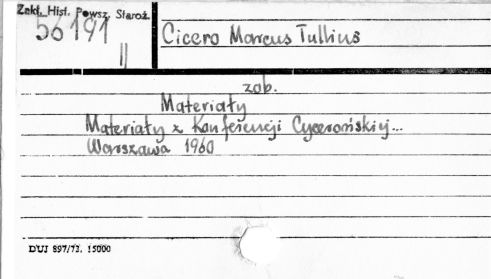 Zakł. Hist. Powsz. Staroż.
56191
II
Cicero Marcus Tullius
zob.
Materiały
Materiały z Konferencji Cycerońskiej...
Warszawa 1960
DUJ 897/72. 15000